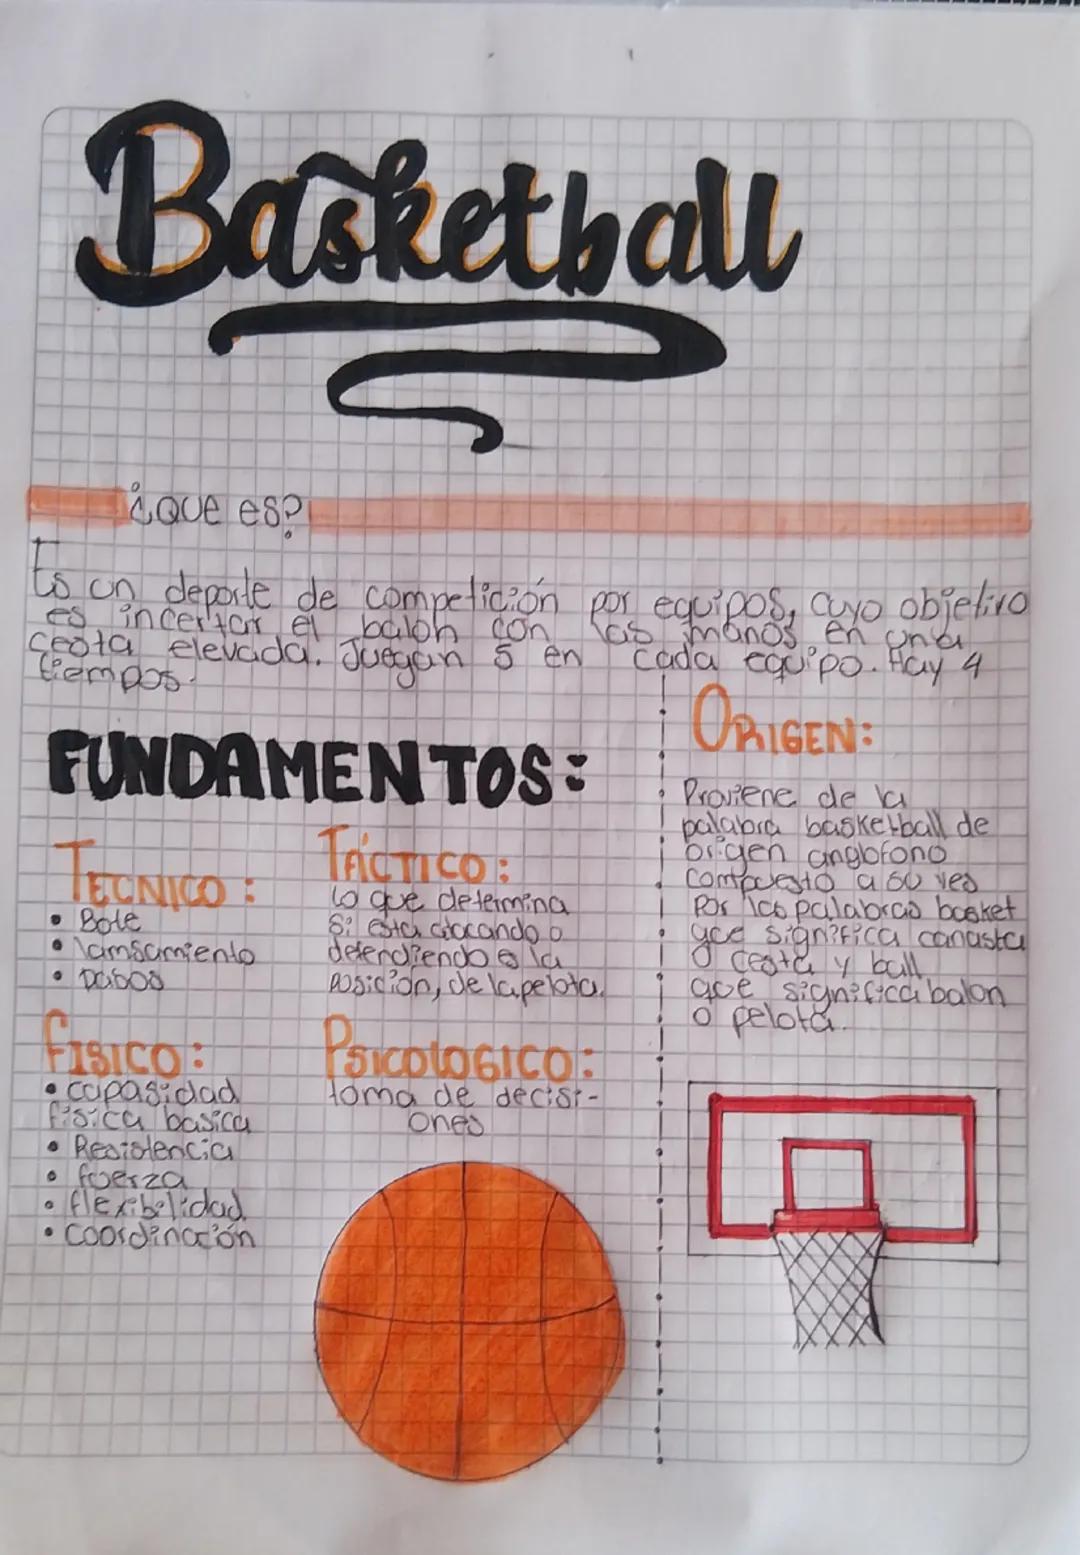 Basketball
¿Que es?
Es un deporte de competición por equipos, cuyo objetivo
es incertar el balon con las manos en una
cesta elevada. Juegan 5 en cada equipo. Hay 4
tiempos.
FUNDAMENTOS:
TECNICO:
• Bote
• lamsamiento
• pasos
TÁCTICO:
Lo que determina
si esta atacando o
defendiendo es la
posición, de la pelota.
FISICO:
• capasidad
fisica basica
• Resistencia
• fuerza
• flexibilidad
• coordinación
PSICOLOGICO:
toma de decisi-
ones
ORIGEN:
Proviene de la
palabra basketball de
origen anglofono
compuesto a su ves
por las palabras basket
que significa canasta
o cesta y ball
que significa balon
o pelota.